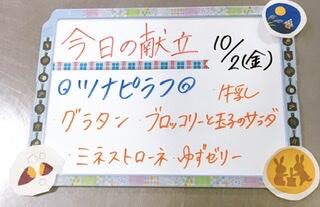 今日の献立 10/2(金)
◎ツナピラフ◎ ・牛乳
・グラタン ・ブロッコリーと玉子のサラダ
・ミネストローネ ・ゆずゼリー